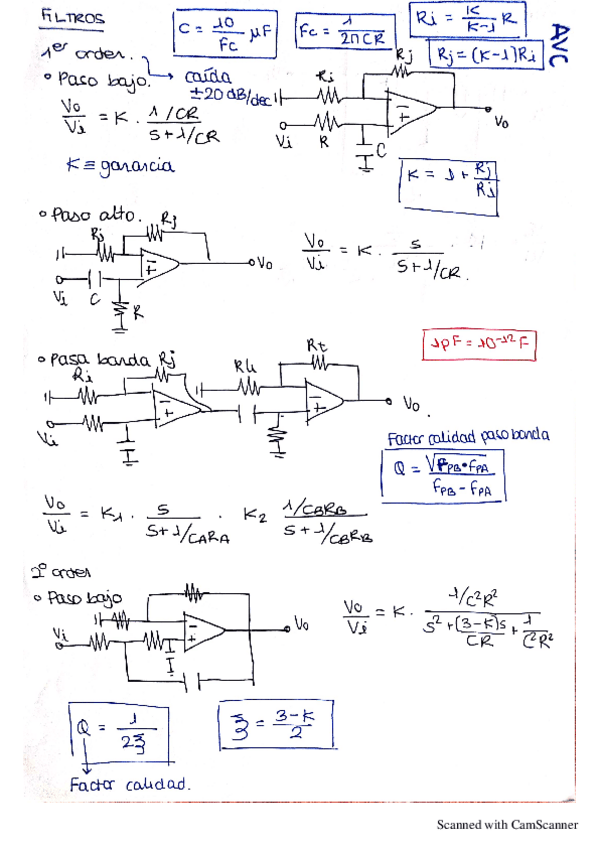 FILTROS
C = 10/Fc μF
Fc = 1/2πCR
Ri = K/K-1 R
Rj = (K-1)Ri
AVC
1er orden.
caída ±20 dB/dec
• Paso bajo.
Vo/Vi = K · 1/CR / S+1/CR
K ≡ ganancia
Ri
Rj
Vi
R
C
Vo
K = 1 + Rj/Ri
• Paso alto.
Ri
Rj
Vi
C
R
Vo
Vo/Vi = K · S / S+1/CR.
1pF = 10^-12 F
• Pasa banda
Ri
Rj
Rk
Rt
Vi
Vo.
Factor calidad paso banda
Q = √FPB·FPA / FPB-FPA
Vo/Vi = K1 · S / S+1/CARA · K2 1/CBRB / S+1/CBRB
2º orden
• Paso bajo
Vi
Vo
Vo/Vi = K · 1/C²R² / S²+(3-K)S/CR + 1/C²R²
Q = 1/2ξ
ξ = 3-K/2
Factor calidad.
Scanned with CamScanner